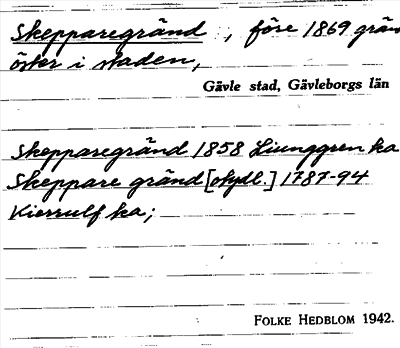 Skepparegränd, före 1869 grän
öster i staden,
Gävle stad, Gävleborgs län
Skepparegränd 1858 Ljunggren ka
Skeppare gränd [otydl.] 1787-94
Kierrulf ka;
FOLKE HEDBLOM 1942.